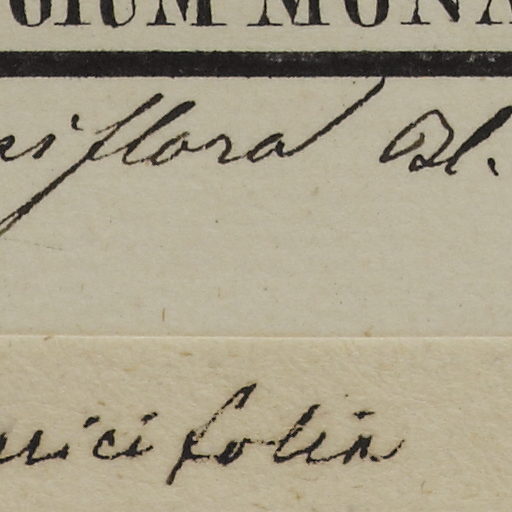 OGIUM MONA
siflora Bl.
ricifolia